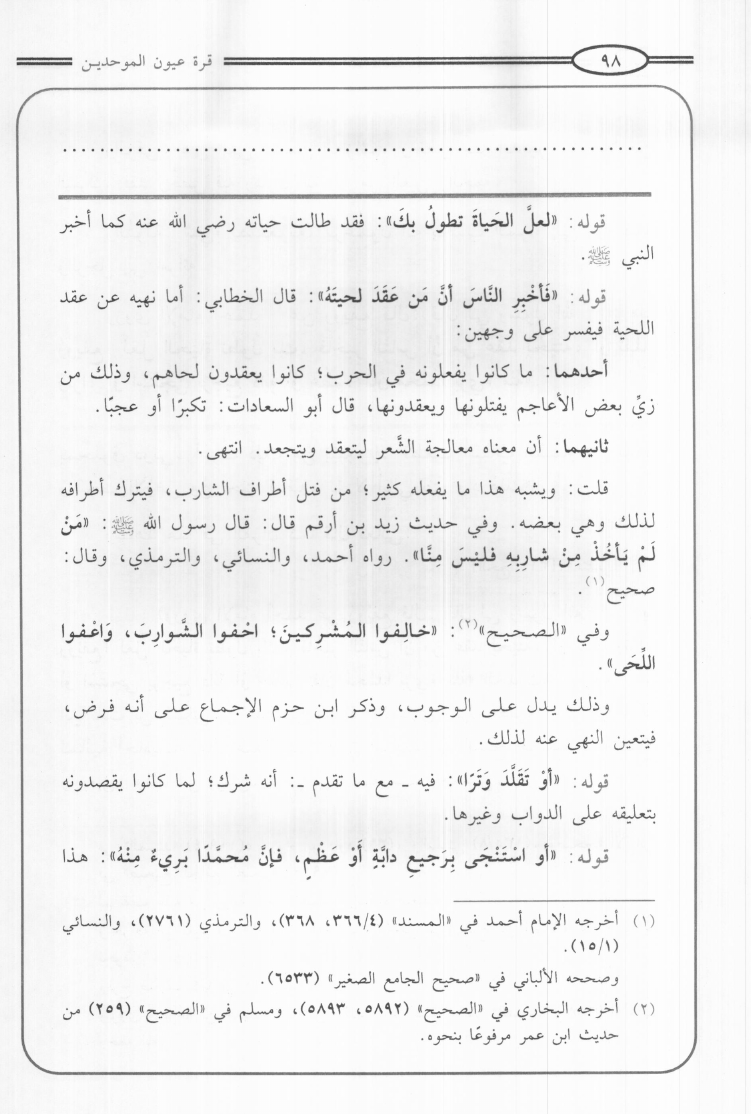 ٩٨
قرة عيون الموحدين
..............................................................
قوله: «لعلَّ الحَياةَ تطولُ بكَ»: فقد طالت حياته رضي الله عنه كما أخبر
النبي ﷺ.
قوله: «فَأخْبِرِ النَّاسَ أنَّ مَن عَقَدَ لحيتَهُ»: قال الخطابي: أما نهيه عن عقد
اللحية فيفسر على وجهين:
أحدهما: ما كانوا يفعلونه في الحرب؛ كانوا يعقدون لحاهم، وذلك من
زيِّ بعض الأعاجم يفتلونها ويعقدونها، قال أبو السعادات: تكبرًا أو عجبًا.
ثانيهما: أن معناه معالجة الشَّعر ليتعقد ويتجعد. انتهى.
قلت: ويشبه هذا ما يفعله كثير؛ من فتل أطراف الشارب، فيترك أطرافه
لذلك وهي بعضه. وفي حديث زيد بن أرقم قال: قال رسول الله ﷺ: «مَنْ
لَمْ يَأخُذْ مِنْ شارِبِهِ فليْسَ مِنَّا». رواه أحمد، والنسائي، والترمذي، وقال:
صحيح(١).
وفي «الصحيح»(٢): «خالِفوا المُشْرِكينَ؛ احْفوا الشَّوارِبَ، وَاعْفوا
اللِّحَى».
وذلك يدل على الوجوب، وذكر ابن حزم الإجماع على أنه فرض،
فيتعين النهي عنه لذلك.
قوله: «أوْ تَقَلَّدَ وَتَرًا»: فيه ـ مع ما تقدم ـ: أنه شرك؛ لما كانوا يقصدونه
بتعليقه على الدواب وغيرها.
قوله: «أو اسْتَنْجَى بِرَجيعِ دابَّةٍ أَوْ عَظْمٍ، فإنَّ مُحمَّدًا بَرِيءٌ مِنْهُ»: هذا
(١) أخرجه الإمام أحمد في «المسند» (٣٦٦/٤، ٣٦٨)، والترمذي (٢٧٦١)، والنسائي
(١٥/١).
وصححه الألباني في «صحيح الجامع الصغير» (٦٥٣٣).
(٢) أخرجه البخاري في «الصحيح» (٥٨٩٢، ٥٨٩٣)، ومسلم في «الصحيح» (٢٥٩) من
حديث ابن عمر مرفوعًا بنحوه.